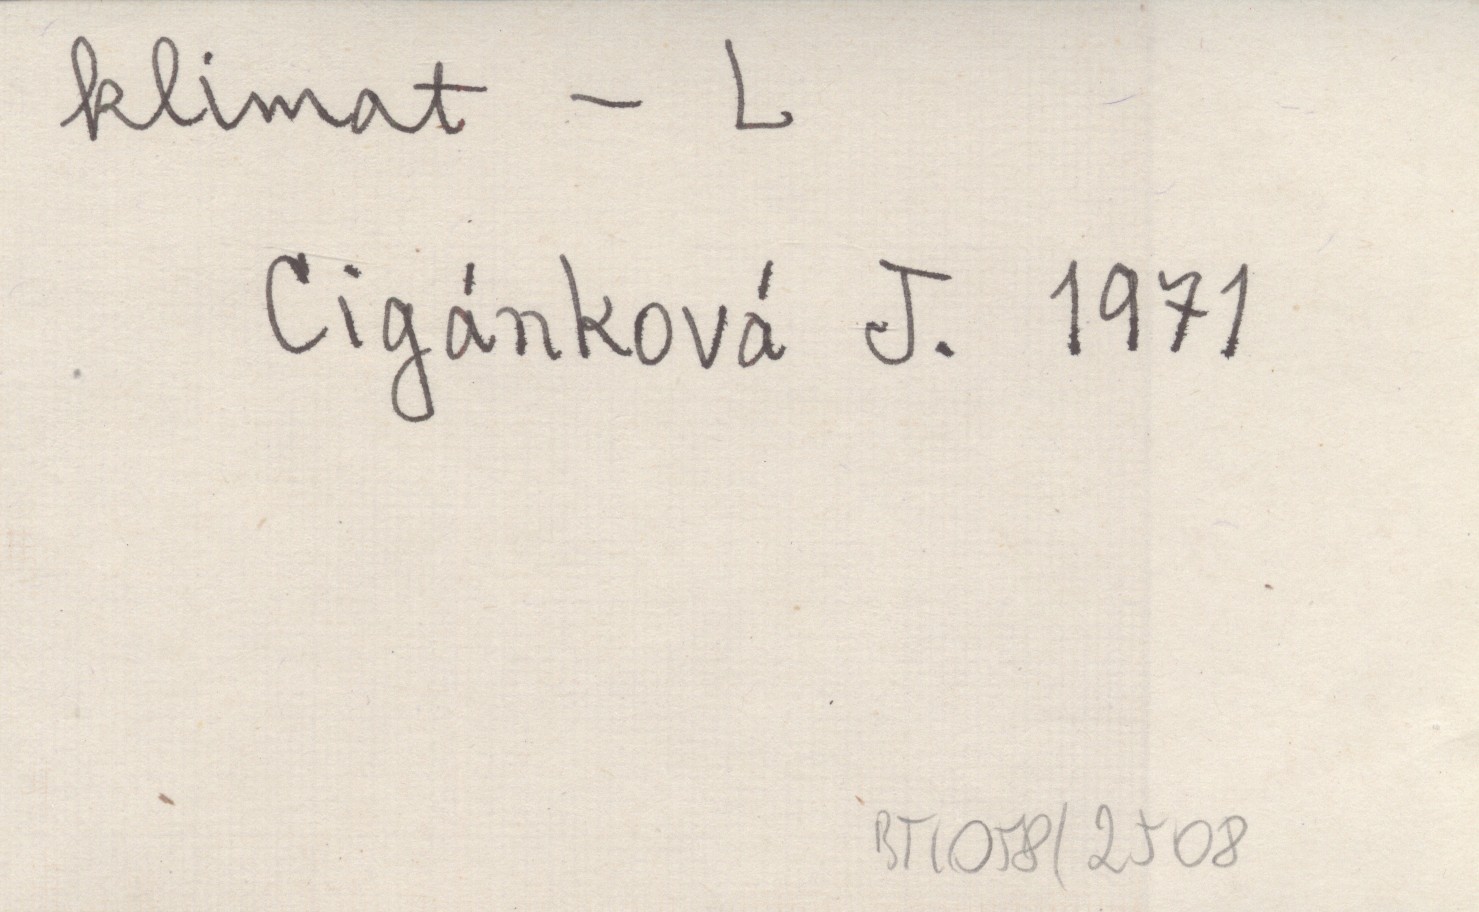 klimat - L
Cigánková J. 1971
BT/058/2508